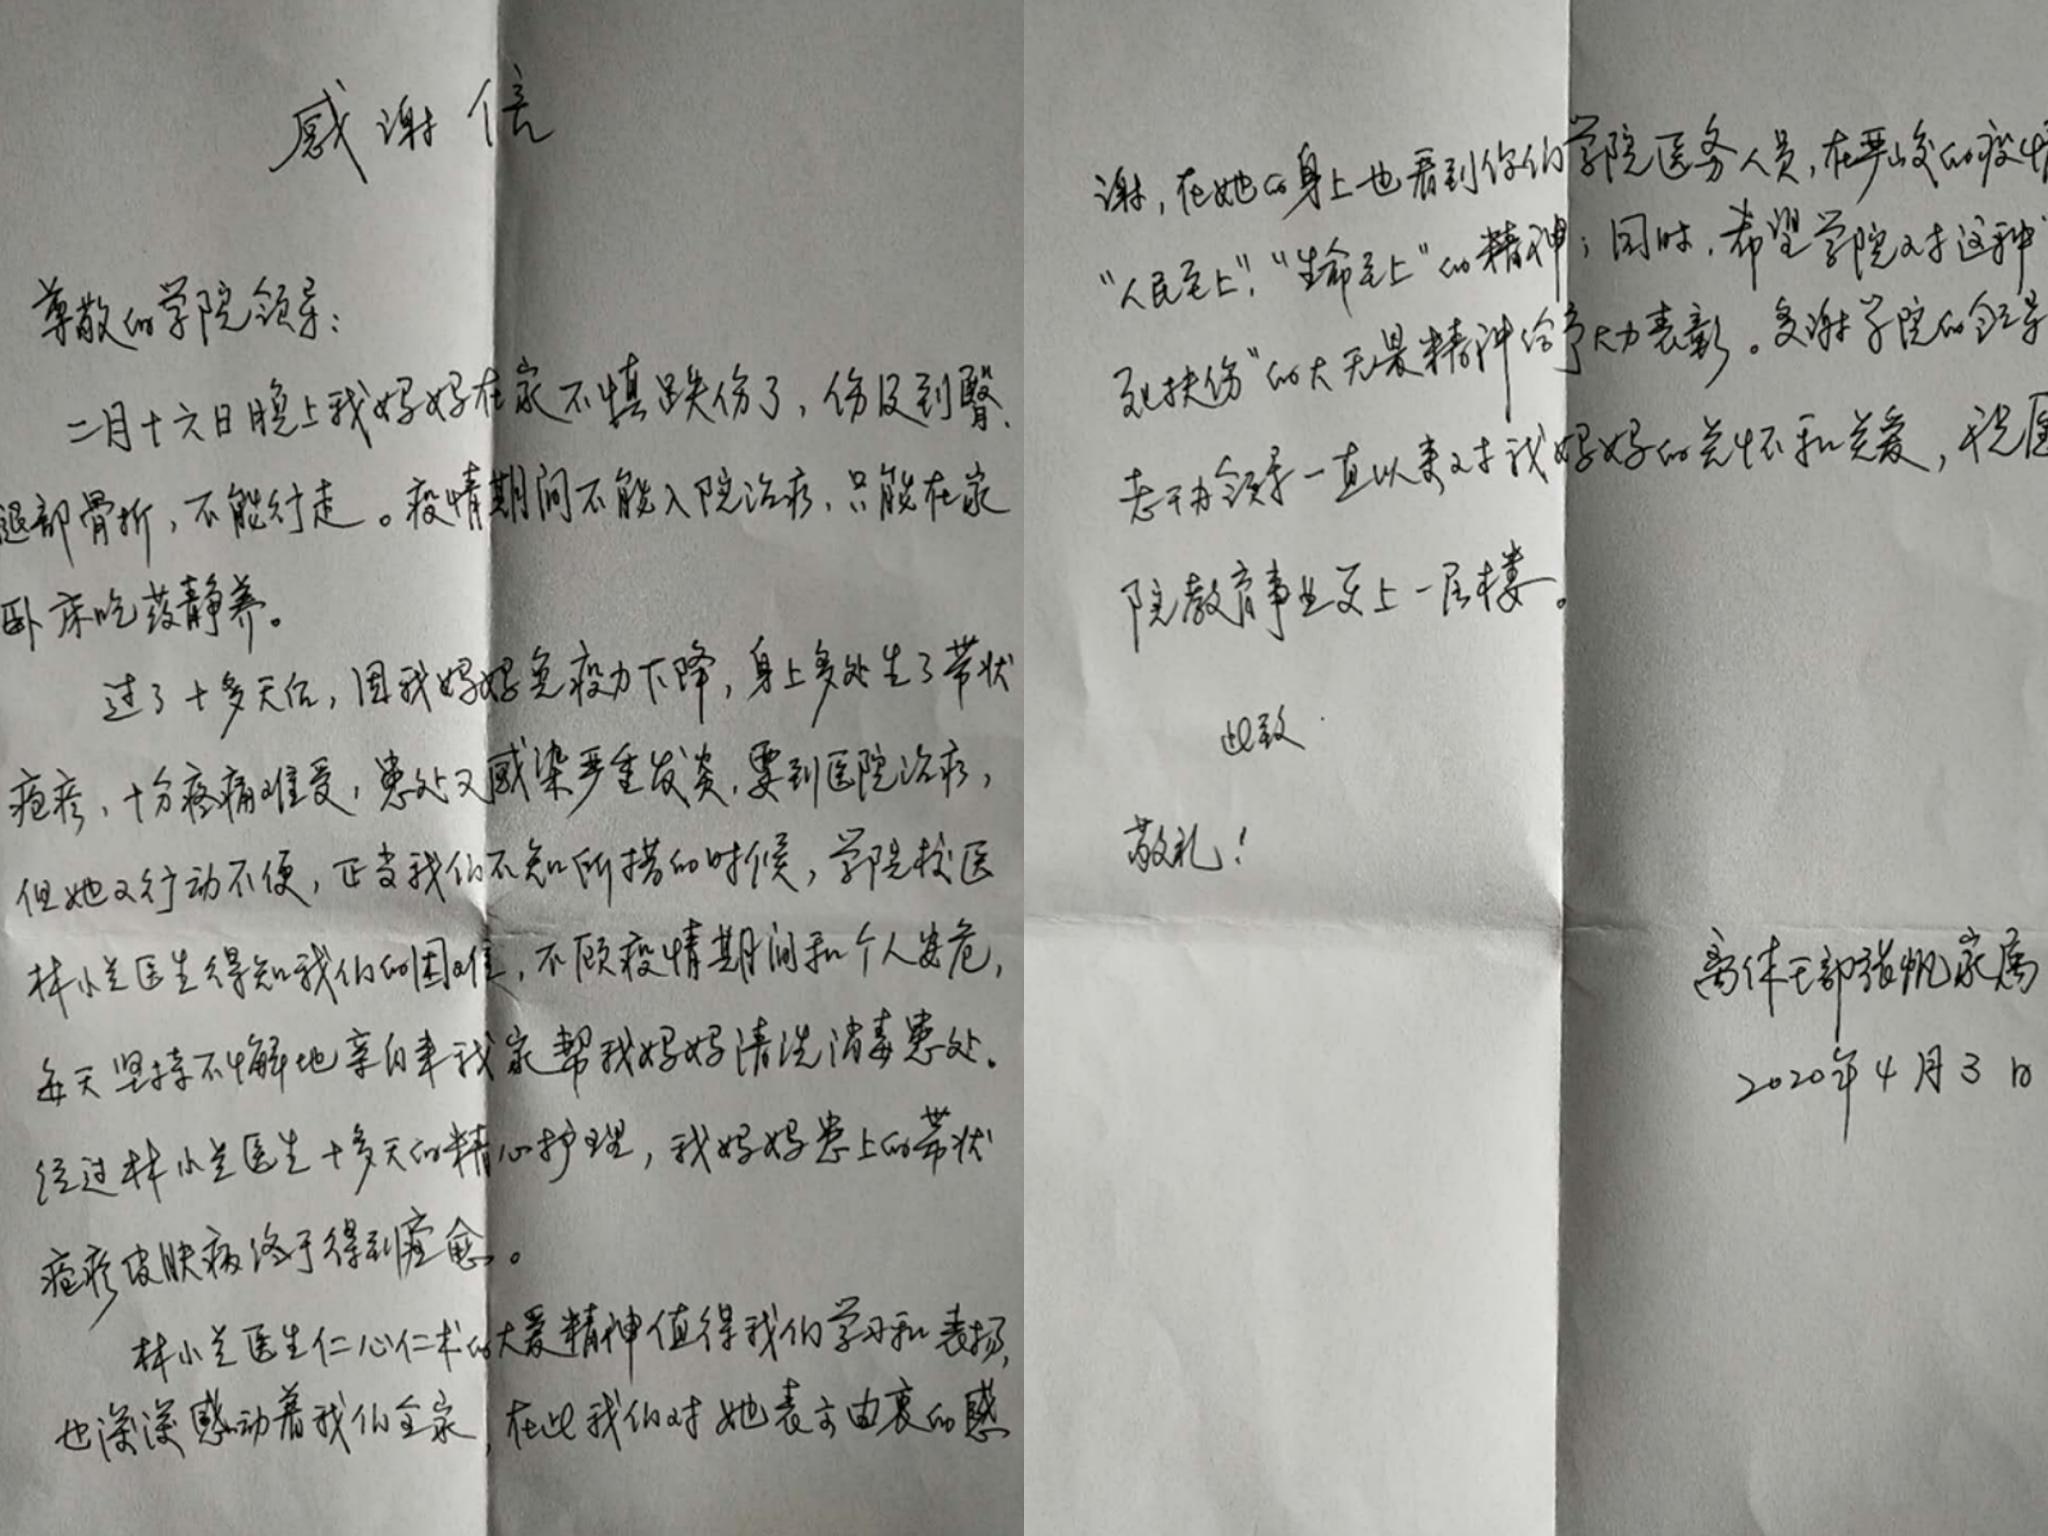 感谢信
尊敬的学院领导：
二月十六日晚上我妈妈在家不慎跌伤了，伤及到臀、
腿部骨折，不能行走。疫情期间不能入院治疗，只能在家
卧床吃药静养。
过了十多天后，因我妈妈免疫力下降，身上多处生了带状
疱疹，十分疼痛难受，患处又感染严重发炎，要到医院治疗，
但她又行动不便，正当我们不知所措的时候，学院校医
林小兰医生得知我们的困难，不顾疫情期间和个人安危，
每天坚持不懈地亲自来我家帮我妈妈清洗消毒患处。
经过林小兰医生十多天的精心护理，我妈妈患上的带状
疱疹皮肤病终于得到痊愈。
林小兰医生仁心仁术的大爱精神值得我们学习和表扬，
也深深感动着我们全家，在此我们对她表示由衷的感
谢，在她的身上也看到你们学院医务人员，在严峻的疫情
“人民至上”、“生命至上”的精神；同时，希望学院对这种“
死扶伤”的大无畏精神给予大力表彰。多谢学院的领导
老干办领导一直以来对我妈妈的关怀和关爱，祝医
院教育事业更上一层楼。
此致
敬礼！
离休干部张帆家属
2020年4月3日